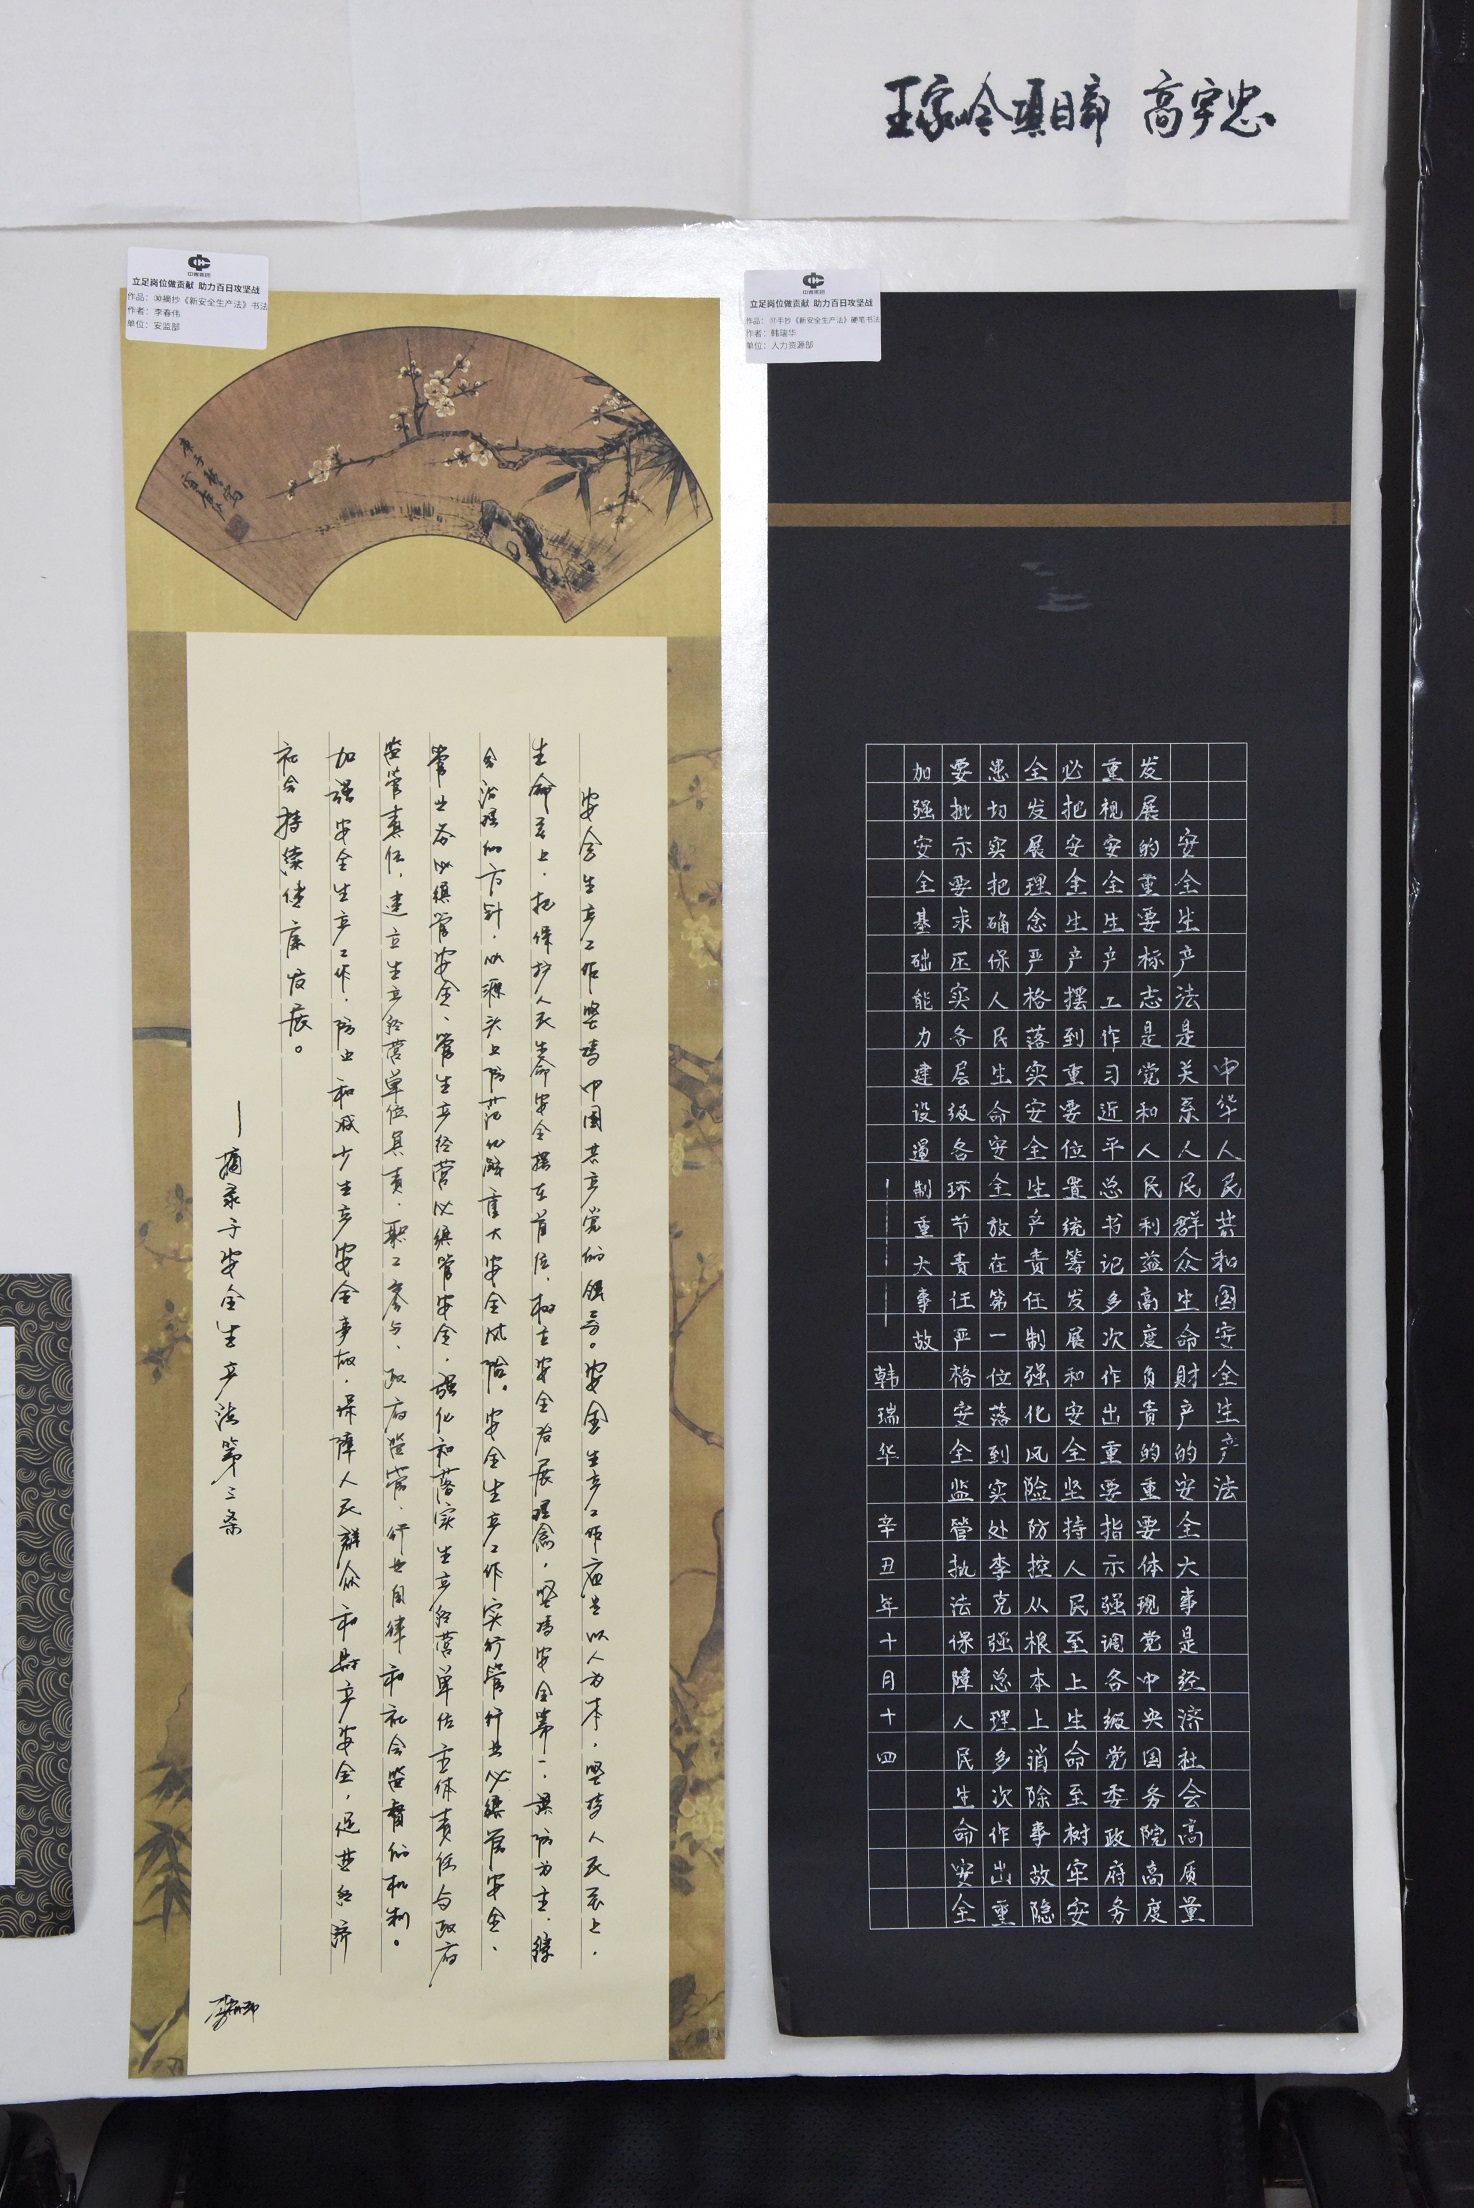 王家岭项目部 高宇忠
中煤集团
立足岗位做贡献 助力百日攻坚战
作品：摘抄《新安全生产法》书法
作者：李春伟
单位：安监部
安全生产工作坚持中国共产党的领导。安全生产工作应当以人为本，坚持人民至上、
生命至上，把保护人民生命安全摆在首位，树立安全发展理念，坚持安全第一、预防为主、综
合治理的方针，从源头上防范化解重大安全风险。安全生产工作实行管行业必须管安全、
管业务必须管安全、管生产经营必须管安全，强化和落实生产经营单位主体责任与政府
监管责任，建立生产经营单位负责、职工参与、政府监管、行业自律和社会监督的机制。
加强安全生产工作，防止和减少生产安全事故，保障人民群众和财产安全，促进经济
社会持续健康发展。
—摘录于安全生产法第三条
中煤集团
立足岗位做贡献 助力百日攻坚战
作品：手抄《新安全生产法》硬笔书法
作者：韩瑞华
单位：人力资源部
中华人民共和国安全生产法
安全生产法是关系人民群众生命财产的安全大事是经济社会高质量
发展的重要标志是党和人民利益高度负责的重要体现党中央国务院高度
重视安全生产工作习近平总书记多次作出重要指示强调各级党委政府务
必把安全生产摆到重要位置统筹发展和安全坚持人民至上生命至树牢安
全发展理念严格落实安全生产责任制强化风险防控从根本上消除事故隐
患切实把确保人民生命安全放在第一位落到实处李克强总理多次作出重
要批示要求压实各层级各环节责任严格安全监管执法保障人民生命安全
加强安全基础能力建设遏制重大事故
——韩瑞华 辛丑年十月十四